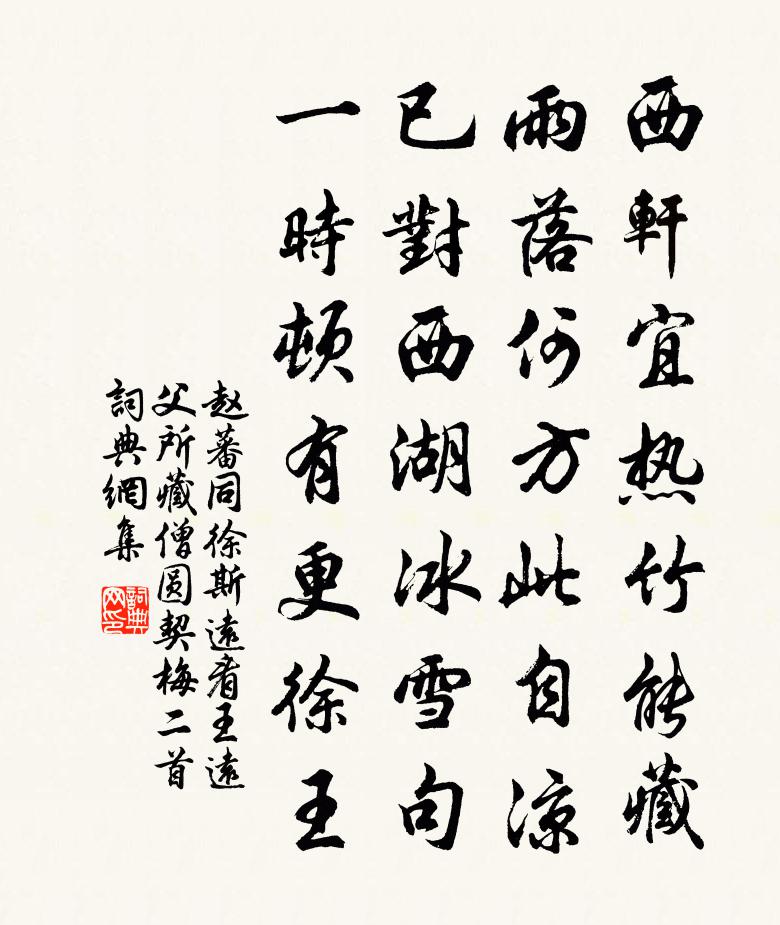 西軒宜热竹能藏
雨落何方此自凉
已對西湖冰雪句
一時頓有更徐王
赵蕃同徐斯遠看王遠
父所藏僧圆契梅二首
詞典網集
詞典
网印